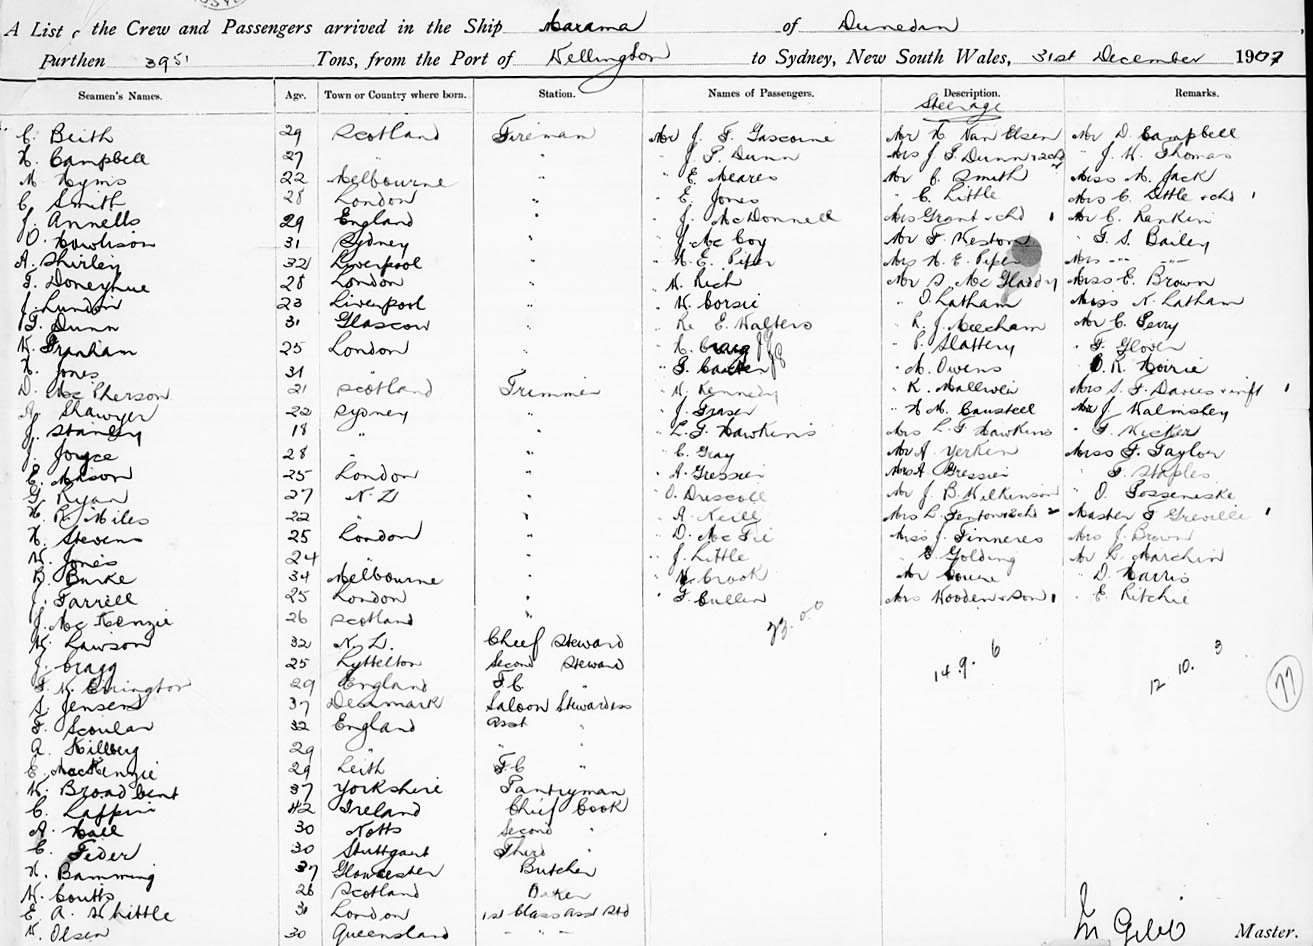 A List of the Crew and Passengers arrived in the Ship Marama of Dunedin
Burthen 3951 Tons, from the Port of Wellington to Sydney, New South Wales, 31st December 1907
Seamen's Names. Age. Town or Country where born. Station. Names of Passengers. Description. Remarks.
Steerage
C. Beith 29 Scotland Fireman Mr J. F. Gascoine Mr H Van Elsen Mr D. Campbell
H. Campbell 27 " " " J. P. Dunn Mrs J P. Dunn + 2 chd 2 " J. H. Thomas
M. Hyms 22 Melbourne " " E. Meares Mr C. Smith Miss M. Jack
C. Smith 28 London " " E. Jones " C. Little Mrs C. Little + chd 1
J. Annells 29 England " " J. McDonnell Mrs Grant + chd 1 Mr C. Rankin
O. 31 Sydney " " J. McCoy Mr F. Keston " F. S. Bailey
A. Shirley 32 Liverpool " " H. E. Piper Mrs H. E. Piper Mrs " "
T. Doneyhue 28 London " " H. Rich Mr S. McGladdy Miss E. Brown
J. Lundon 23 Liverpool " " H. Corsie " O. Latham Miss N. Latham
T. Dunn 31 Glascow " " E. Walters " R. J. Meecham Mr C. Perry
H. Granham 25 London " " H. Craig " P. Slattery " F. Glover
H. Jones 31 " " " M. Owens
D. McPherson 21 Scotland Trimmer " H. Kennedy " K. Mrs S. F. Davies + inft 1
A. Shawyer 22 Sydney " " J. Fraser " H. M. Mr J. Walmsley
J. Stanley 18 " " " L. F. Hawkins Mrs L. F. Hawkins " F. Hicker
J. Joyce 28 " " " C. Gray Mr A. Yerkin Miss F. Taylor
E. Mison 25 London " " A. Gressier Mrs A Gressier " F. Staples
G. Ryan 27 N. Z " " O. Driscoll Mr J. B. Wilkinson " O.
H. R. Miles 22 " " " A. Keill Mrs L. Fenton + 2 chd 2 Master F Greville 1
H. Stevens 25 London " " D. McFie Miss J. Finneres Mrs J. Brown
W. Jones 24 " " " J. Little " E. Golding Mr L. Marchin
R. Burke 34 Melbourne " " H. Crook Mr " D. Harris
J. Farrell 25 London " " F. Cullen Mrs Wooden + Son 1 " E. Ritchie
J. McKenzie 26 Scotland " 23.0.0
W. Lawson 32 N. Z. Chief Steward 14.9.6
J. Cragg 25 Lyttelton Second Steward 12 10. 3
F. H. Errington 29 England F C " 77
S. Jensen 37 Denmark Saloon Stewardess
F. Scoular 32 England Asst "
A. Killberg 29 " " "
E. MacKenzie 29 Leith F. C "
H. Broadbent 37 Yorkshire Pantryman
C. Lappin 42 Ireland Chief Cook
A. Hall 30 Notts Second "
C. Feder 30 Stuttgart Third "
H. Bamming 37 Gloucester Butcher
H. Coutts 26 Scotland Baker
E. A. Whittle 31 London 1st Class Asst Std
K. Olsen 30 Queensland " " "
M Gibb Master.